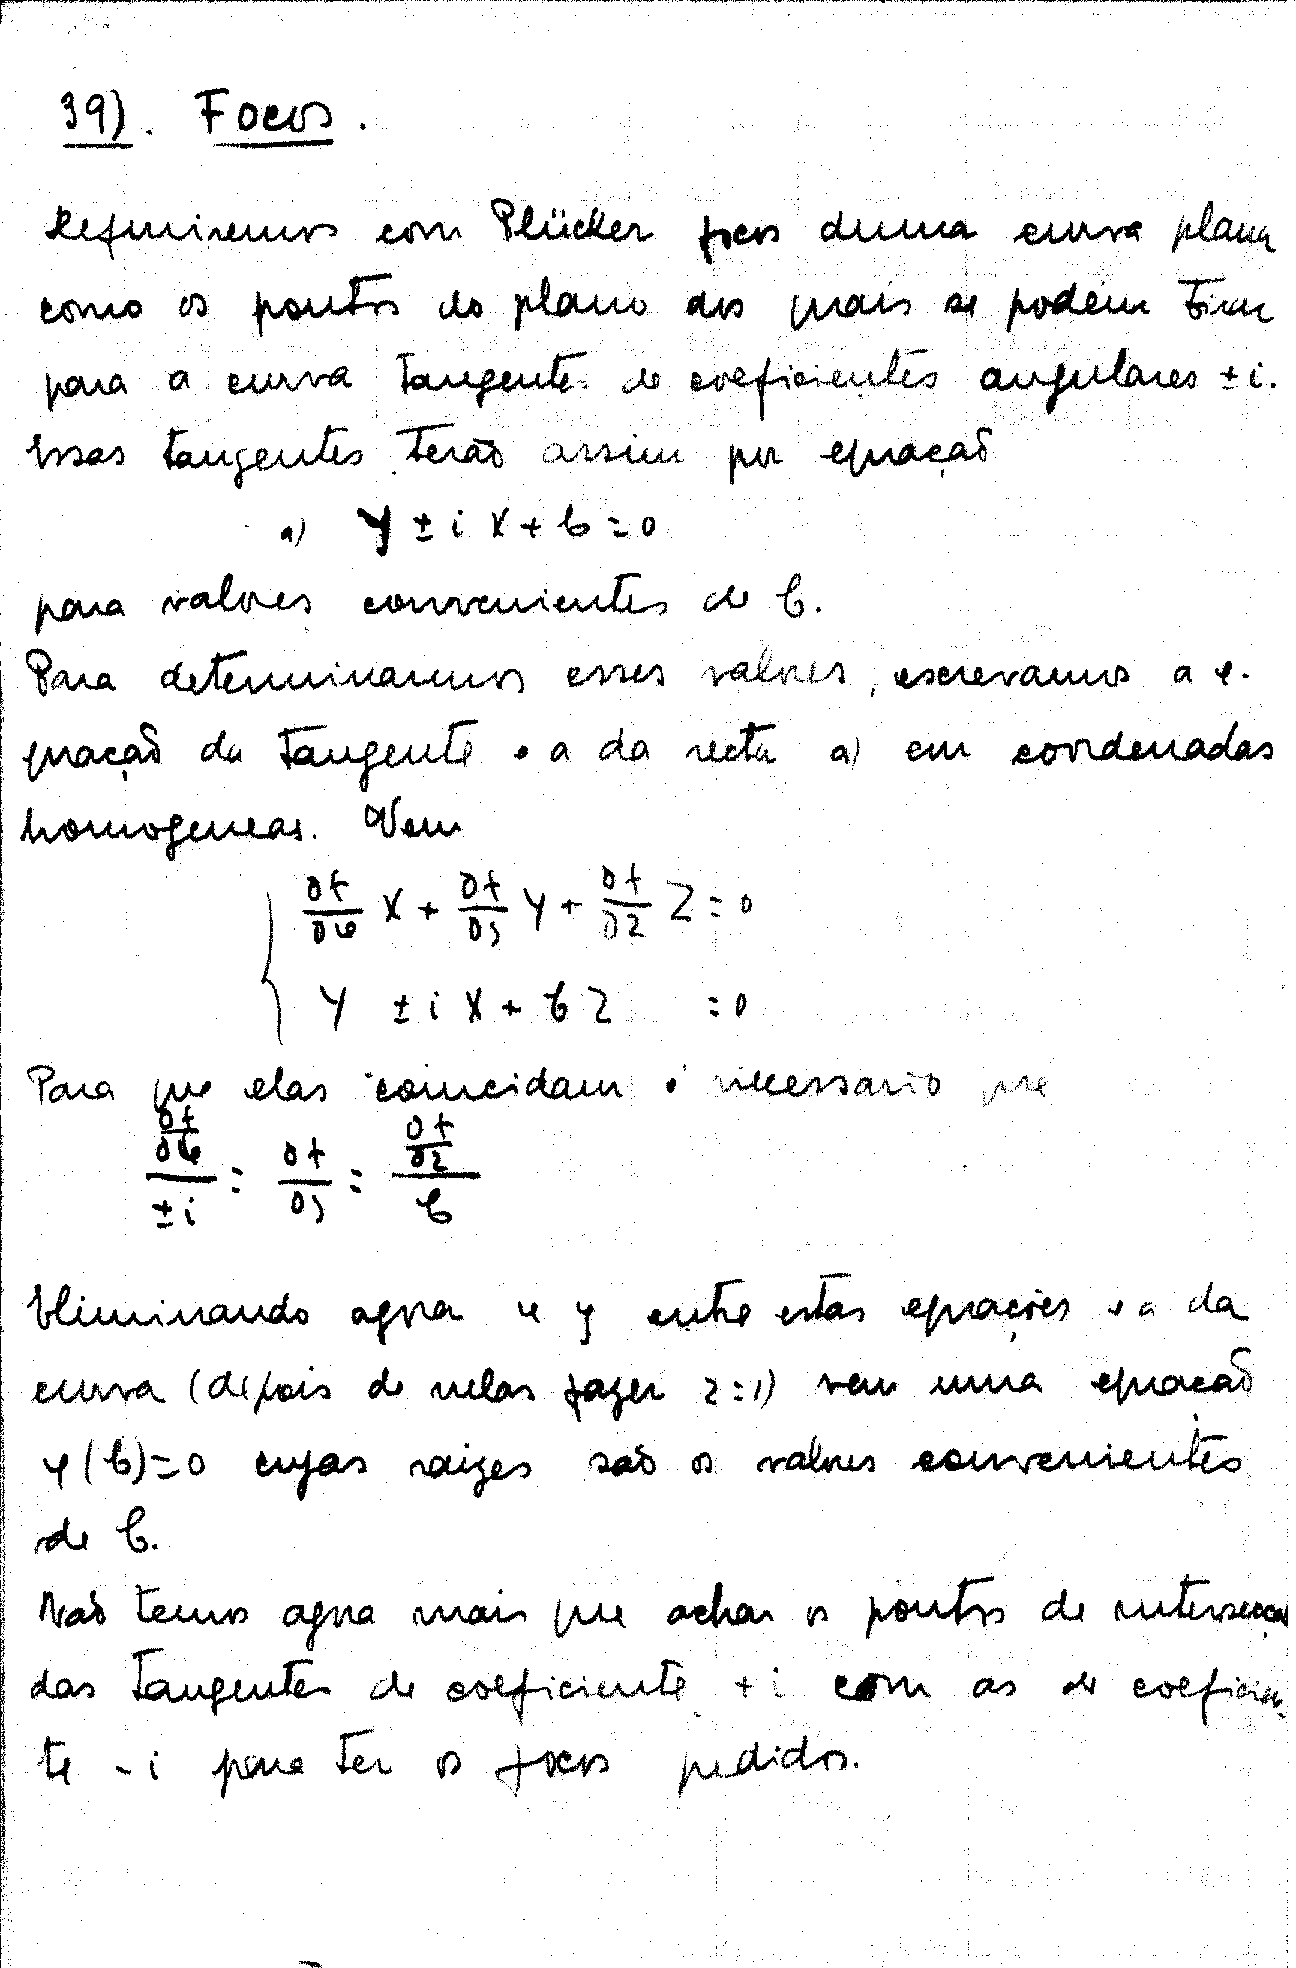 39). Focos.
Definiremos com Plücker focos duma curva plana
como os pontos do plano dos quais se podem tirar
para a curva tangentes de coeficientes angulares ± i.
Essas tangentes terão assim por equação
a) Y ± i X + b = 0
para valores convenientes de b.
Para determinarmos esses valores, escrevamos a e-
quação da tangente e a da recta a) em coordenadas
homogeneas. Vem
∂f/∂x X + ∂f/∂y Y + ∂f/∂z Z = 0
Y ± i X + b Z = 0
Para que elas coincidam é necessario que
(∂f/∂x)/(± i) = ∂f/∂y = (∂f/∂z)/b
Eliminando agora x y entre estas equações e a da
curva (depois de nelas fazer z=1) vem uma equação
φ(b)=0 cujas raizes são os valores convenientes
de b.
Não temos agora mais que achar os pontos de intersecção
das tangentes de coeficiente + i com as de coeficien-
te - i para ter os focos pedidos.